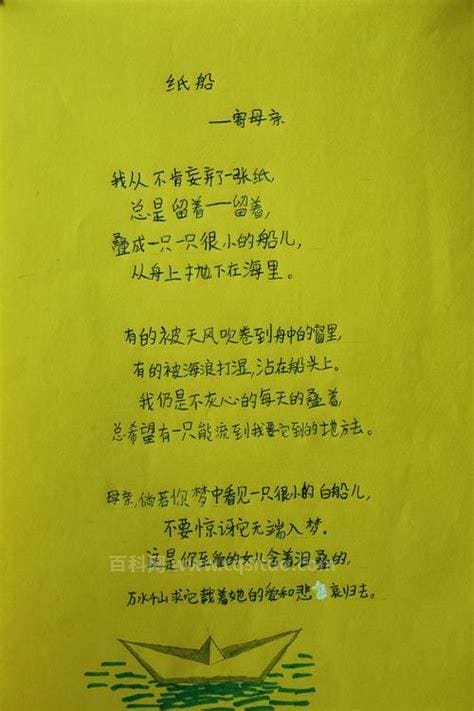 纸船
——寄母亲
我从不肯妄弃了一张纸,
总是留着——留着,
叠成一只一只很小的船儿,
从舟上抛下在海里。
有的被天风吹卷到舟中的窗里,
有的被海浪打湿,沾在船头上。
我仍是不灰心的每天的叠着,
总希望有一只能流到我要它到的地方去。
母亲,倘若你梦中看见一只很小的白船儿,
不要惊讶它无端入梦.
这是你至爱的女儿含着泪叠的,
万水千山求它载着她的爱和悲哀归去。